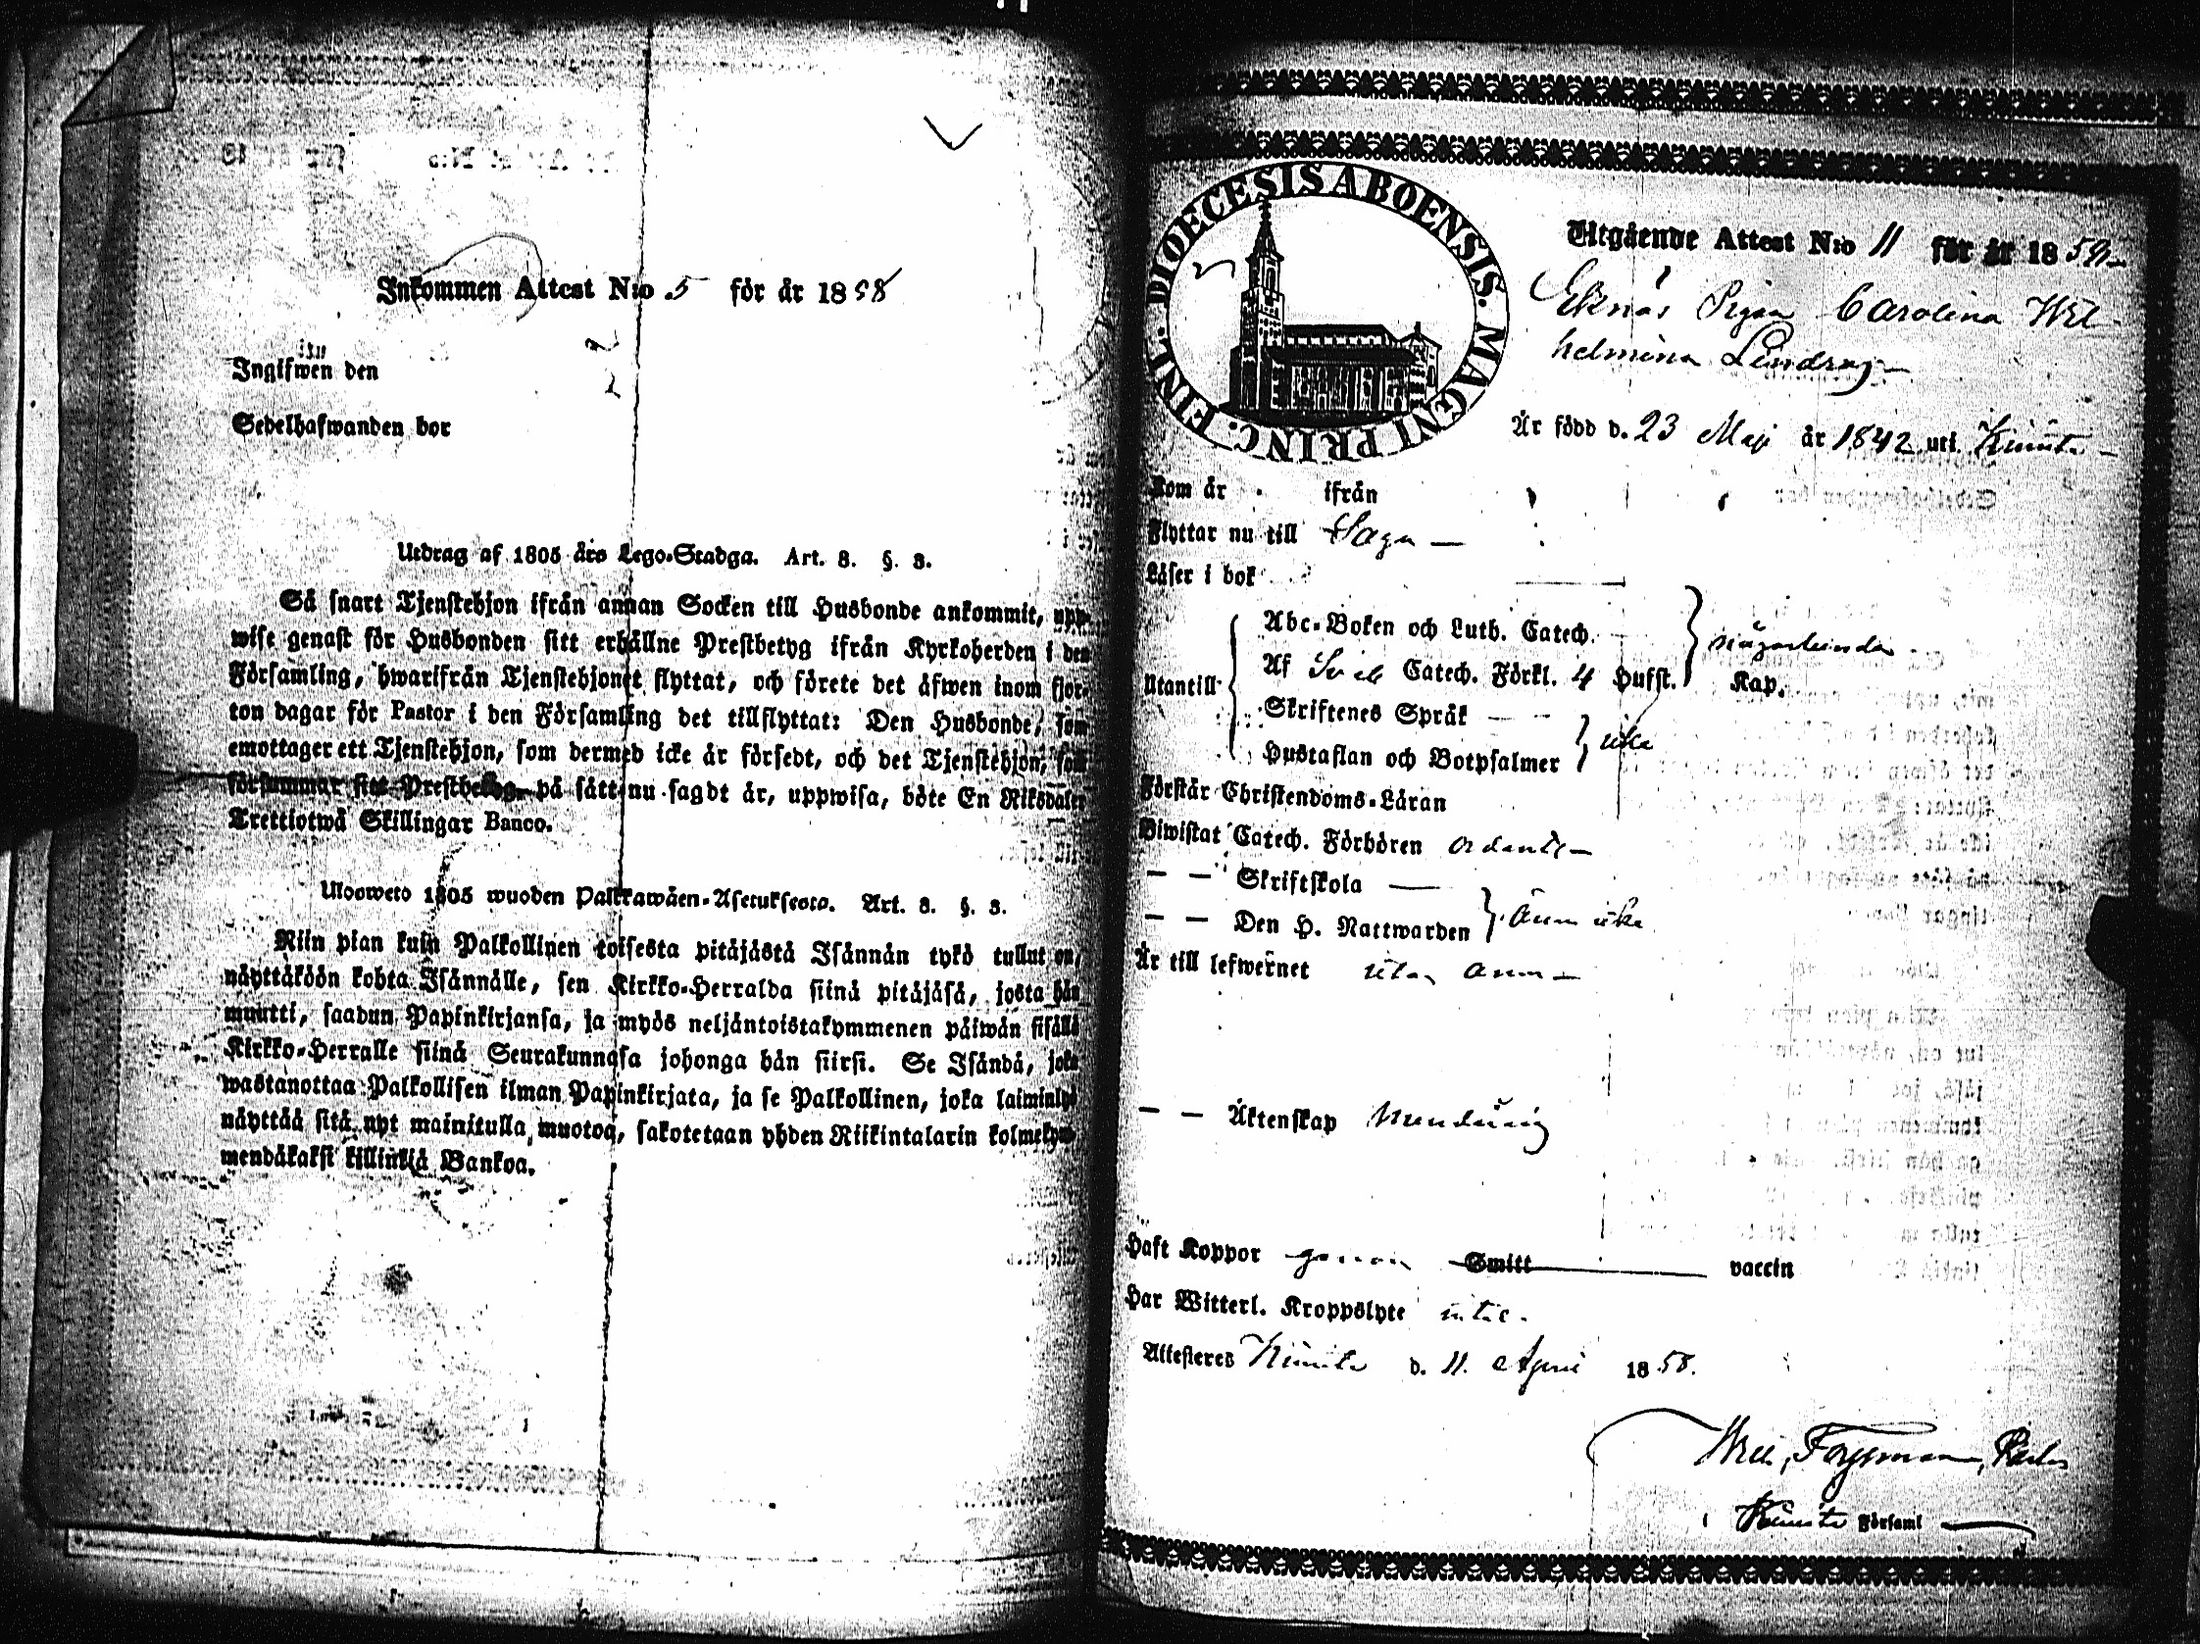 Inkommen Attest N:o 5 för år 1858
Ingifwen den
Sedelhafwanden bor
Utdrag af 1805 års Lego-Stadga. Art. 8. §. 3.
Så snart Tjenstehjon ifrån annan Socken till Husbonde ankommit, upp-
wise genast för Husbonden sitt erhållne Prestbetyg ifrån Kyrkoherden i den
Församling, hwarifrån Tjenstehjonet flyttat, och förete det äfwen inom fjor-
ton dagar för Pastor i den Församling det tillflyttat: Den Husbonde, som
emottager ett Tjenstehjon, som dermed icke är försedt, och det Tjenstehjon, som
försummar sitt Prestbetyg, på sätt nu sagdt är, uppwisa, böte En Riksdaler
Trettiotwå Skillingar Banco.
Ulosweto 1805 wuoden Palkkawäen-Asetuksesta. Art. 8. §. 3.
Niin pian kuin Palkollinen toisesta pitäjästä Isännän tykö tullut on,
näyttäköön kohta Isännälle, sen Kirkko-Herralda siinä pitäjäsä, josta hän
muutti, saadun Papinkirjansa, ja myös neljäntoistakymmenen päiwän sisällä
Kirkko-Herralle siinä Seurakunnasa johonga hän siirsi. Se Isändä, joka
wastanottaa Palkollisen ilman Papinkirjata, ja se Palkollinen, joka laiminlyö
näyttää sitä nyt mainitulla muotoa, sakotetaan yhden Riikintalarin kolmekym-
mendäkaksi killinkiä Bankoa.
DIOECESIS ABOENSIS. MAGNI PRINC. FINL.
Utgående Attest N:o 11 för år 1858
Pigan Carolina Wil-
helmina
Är född d. 23 Maji år 1842 uti Kimito
Kom år ifrån
Flyttar nu till Sagu
Läser i bok
Abc-Boken och Luth. Catech. någorlunda
Utantill Af Sveb Catech. Förkl. 4 Hufst. Kap.
Skriftenes Språk
Hustaflan och Botpsalmer icke
Förstår Christendoms-Läran
Biwistat Catech. Förhören ordentl
— — Skriftskola
— — Den H. Nattwarden ännu icke
Är till lefwernet utan anm
— — Äktenskap
Haft Koppor genom Smitt vaccin
Har Witterl. Kroppslyte
Attesteras Kimito d. 11 April 1858.
Kimito Församl